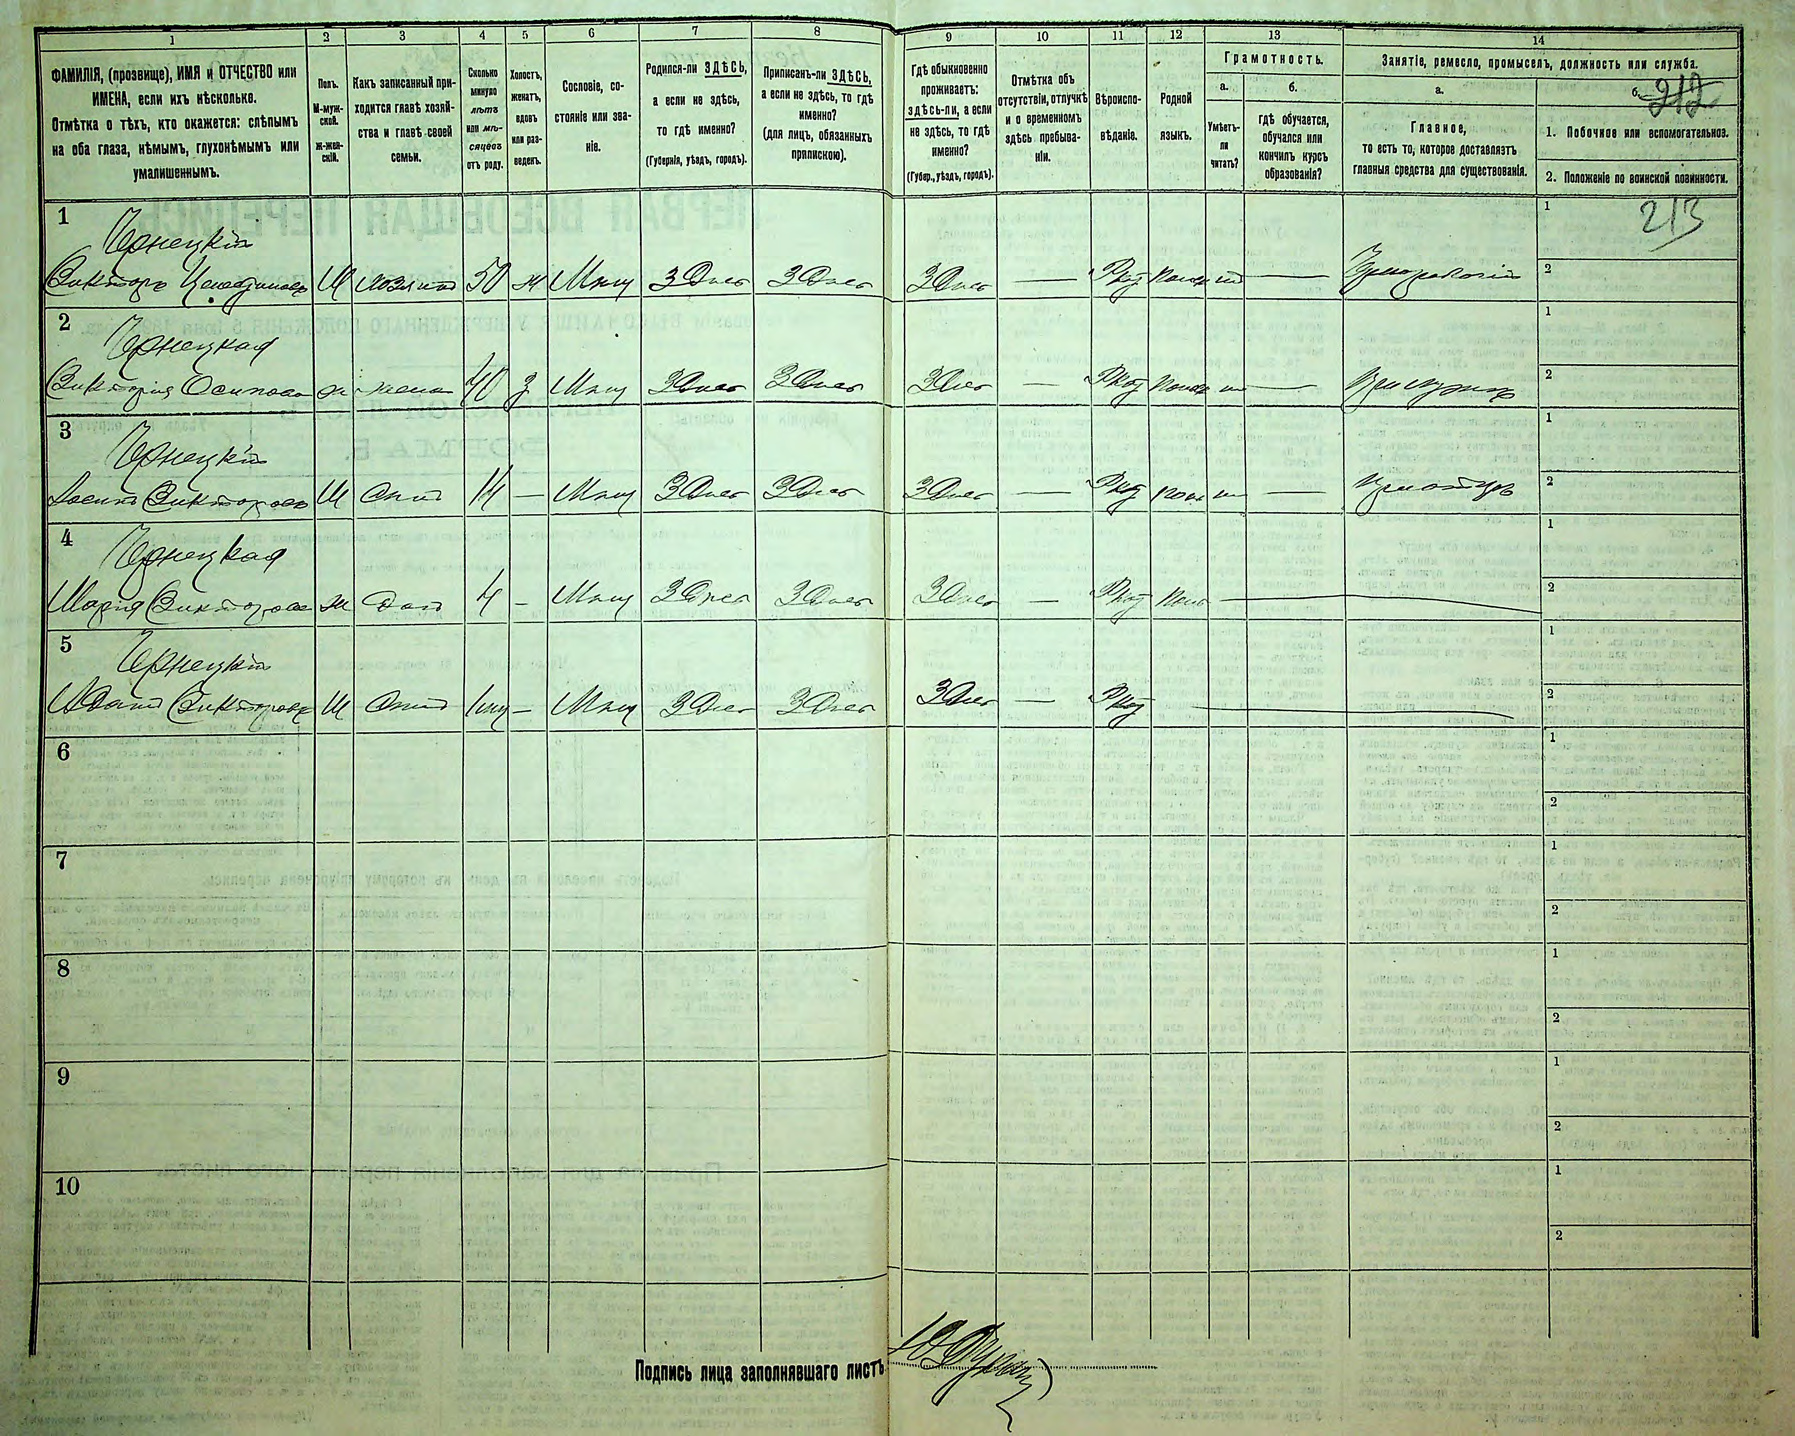 1
2
3
4
5
6
7
8
9
10
11
12
13
14
ФАМИЛІЯ, (прозвище), ИМЯ и ОТЧЕСТВО или
ИМЕНА, если ихъ нѣсколько.
Отмѣтка о тѣхъ, кто окажется: слѣпымъ
на оба глаза, нѣмымъ, глухонѣмымъ или
умалишеннымъ.
Полъ.
М-муж-
ской.
ж-жен-
скій.
Какъ записанный при-
ходится главѣ хозяй-
ства и главѣ своей
семьи.
Сколько
минуло
лѣтъ
или мѣ-
сяцевъ
отъ роду.
Холостъ,
женатъ,
вдовъ
или раз-
веденъ.
Сословіе, со-
стояніе или зва-
ніе.
Родился-ли ЗДѢСЬ,
а если не здѣсь,
то гдѣ именно?
(Губернія, уѣздъ, городъ).
Приписанъ-ли ЗДѢСЬ,
а если не здѣсь, то гдѣ
именно?
(для лицъ, обязанныхъ
припискою).
Гдѣ обыкновенно
проживаетъ:
здѣсь-ли, а если
не здѣсь, то гдѣ
именно?
(Губер., уѣздъ, городъ).
Отмѣтка объ
отсутствіи, отлучкѣ
и о временномъ
здѣсь пребыва-
ніи.
Вѣроиспо-
вѣданіе.
Родной
языкъ.
Грамотность.
а.
Умѣетъ-
ли
читать?
б.
гдѣ обучается,
обучался или
кончилъ курсъ
образованія?
Занятіе, ремесло, промыселъ, должность или служба.
а.
Главное,
то есть то, которое доставляетъ
главныя средства для существованія.
б.
212
1. Побочное или вспомогательное.
2. Положеніе по воинской повинности.
213
1
Чернецкій
Викторъ М хозяинъ 50 ж Мѣщ Здѣсь Здѣсь Здѣсь — Ркат
1
2
2
Чернецкая
Викторія Осипова ж жена 40 з Мѣщ Здѣсь Здѣсь Здѣсь — Ркат — при мужѣ
1
2
3
Чернецкій
Викторовъ М сынъ 14 — Мѣщ Здѣсь Здѣсь Здѣсь — Ркат — при отцѣ
1
2
4
Чернецкая
Марія Викторова ж дочь 4 — Мѣщ Здѣсь Здѣсь Здѣсь — Ркат
1
2
5
Чернецкій
Иванъ Викторовъ М сынъ — Мѣщ Здѣсь Здѣсь Здѣсь — Ркат
1
2
6
1
2
7
1
2
8
1
2
9
1
2
10
1
2
Подпись лица заполнявшаго листъ